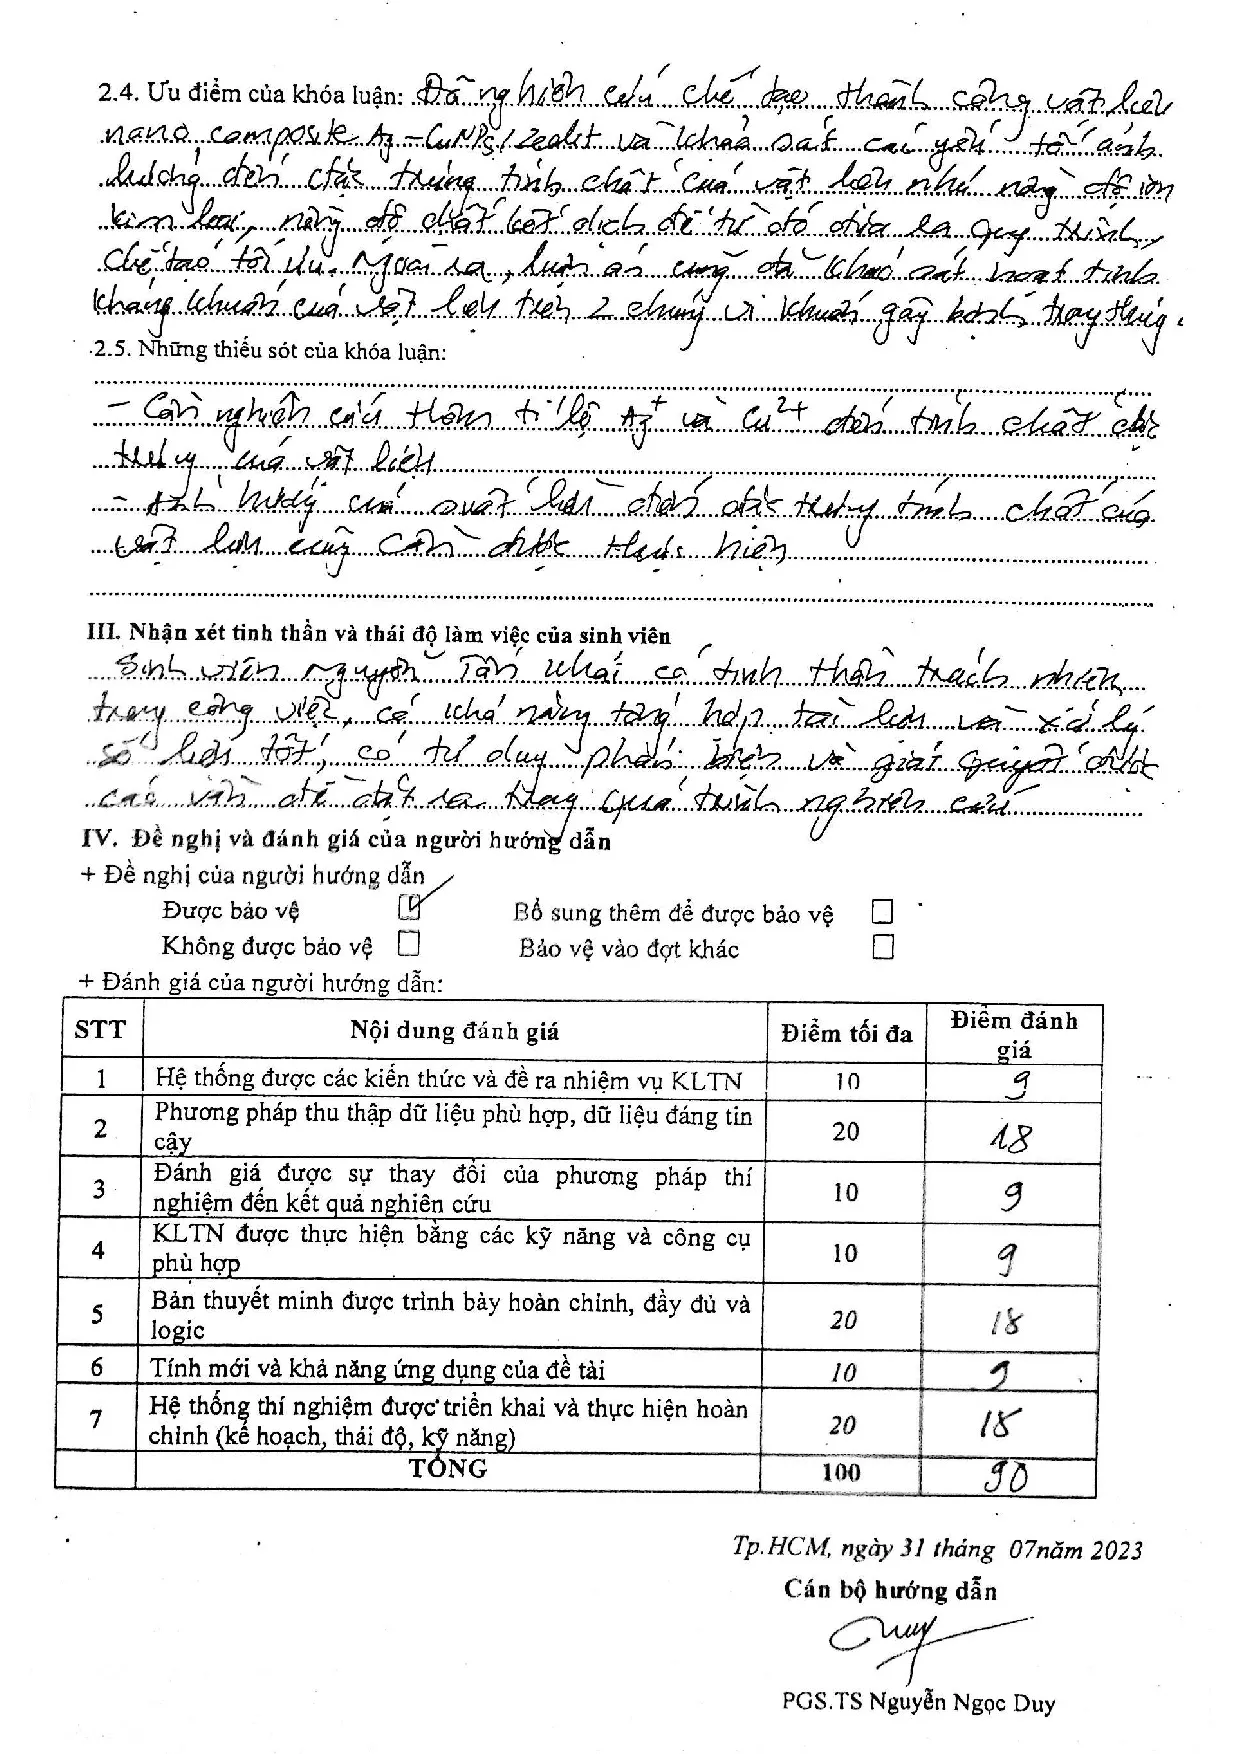 2.4. Ưu điểm của khóa luận: Đã nghiên cứu chế tạo thành công vật liệu
nano composite Ag-CuNPs/zeolit và khảo sát các yếu tố ảnh
hưởng đến đặc trưng tính chất của vật liệu như nồng độ ion
kim loại, nồng độ chất bắt dịch để từ đó đưa ra quy trình
chế tạo tối ưu. Ngoài ra, luận án cũng đã khảo sát hoạt tính
kháng khuẩn của vật liệu trên 2 chủng vi khuẩn gây bệnh
2.5. Những thiếu sót của khóa luận:
- Cần nghiên cứu thêm tỉ lệ Ag+ và Cu2+ đến tính chất đặc
trưng của vật liệu
- Ảnh hưởng của đến đặc trưng tính chất của
vật liệu cũng cần được thực hiện
III. Nhận xét tinh thần và thái độ làm việc của sinh viên
Sinh viên Nguyễn Tấn Khải có tinh thần trách nhiệm
trong công việc, có khả năng tổng hợp tài liệu và xử lý
số liệu tốt, có tư duy phản biện và giải quyết được
các vấn đề đặt ra trong quá trình nghiên cứu
IV. Đề nghị và đánh giá của người hướng dẫn
+ Đề nghị của người hướng dẫn
Được bảo vệ ☑ Bổ sung thêm để được bảo vệ ☐
Không được bảo vệ ☐ Bảo vệ vào đợt khác ☐
+ Đánh giá của người hướng dẫn:
STT Nội dung đánh giá Điểm tối đa Điểm đánh
giá
1 Hệ thống được các kiến thức và đề ra nhiệm vụ KLTN 10 9
2 Phương pháp thu thập dữ liệu phù hợp, dữ liệu đáng tin 20 18
cậy
3 Đánh giá được sự thay đổi của phương pháp thí 10 9
nghiệm đến kết quả nghiên cứu
4 KLTN được thực hiện bằng các kỹ năng và công cụ 10 9
phù hợp
5 Bản thuyết minh được trình bày hoàn chỉnh, đầy đủ và 20 18
logic
6 Tính mới và khả năng ứng dụng của đề tài 10 9
7 Hệ thống thí nghiệm được triển khai và thực hiện hoàn 20 18
chỉnh (kế hoạch, thái độ, kỹ năng)
TỔNG 100 90
Tp.HCM, ngày 31 tháng 07năm 2023
Cán bộ hướng dẫn
PGS.TS Nguyễn Ngọc Duy